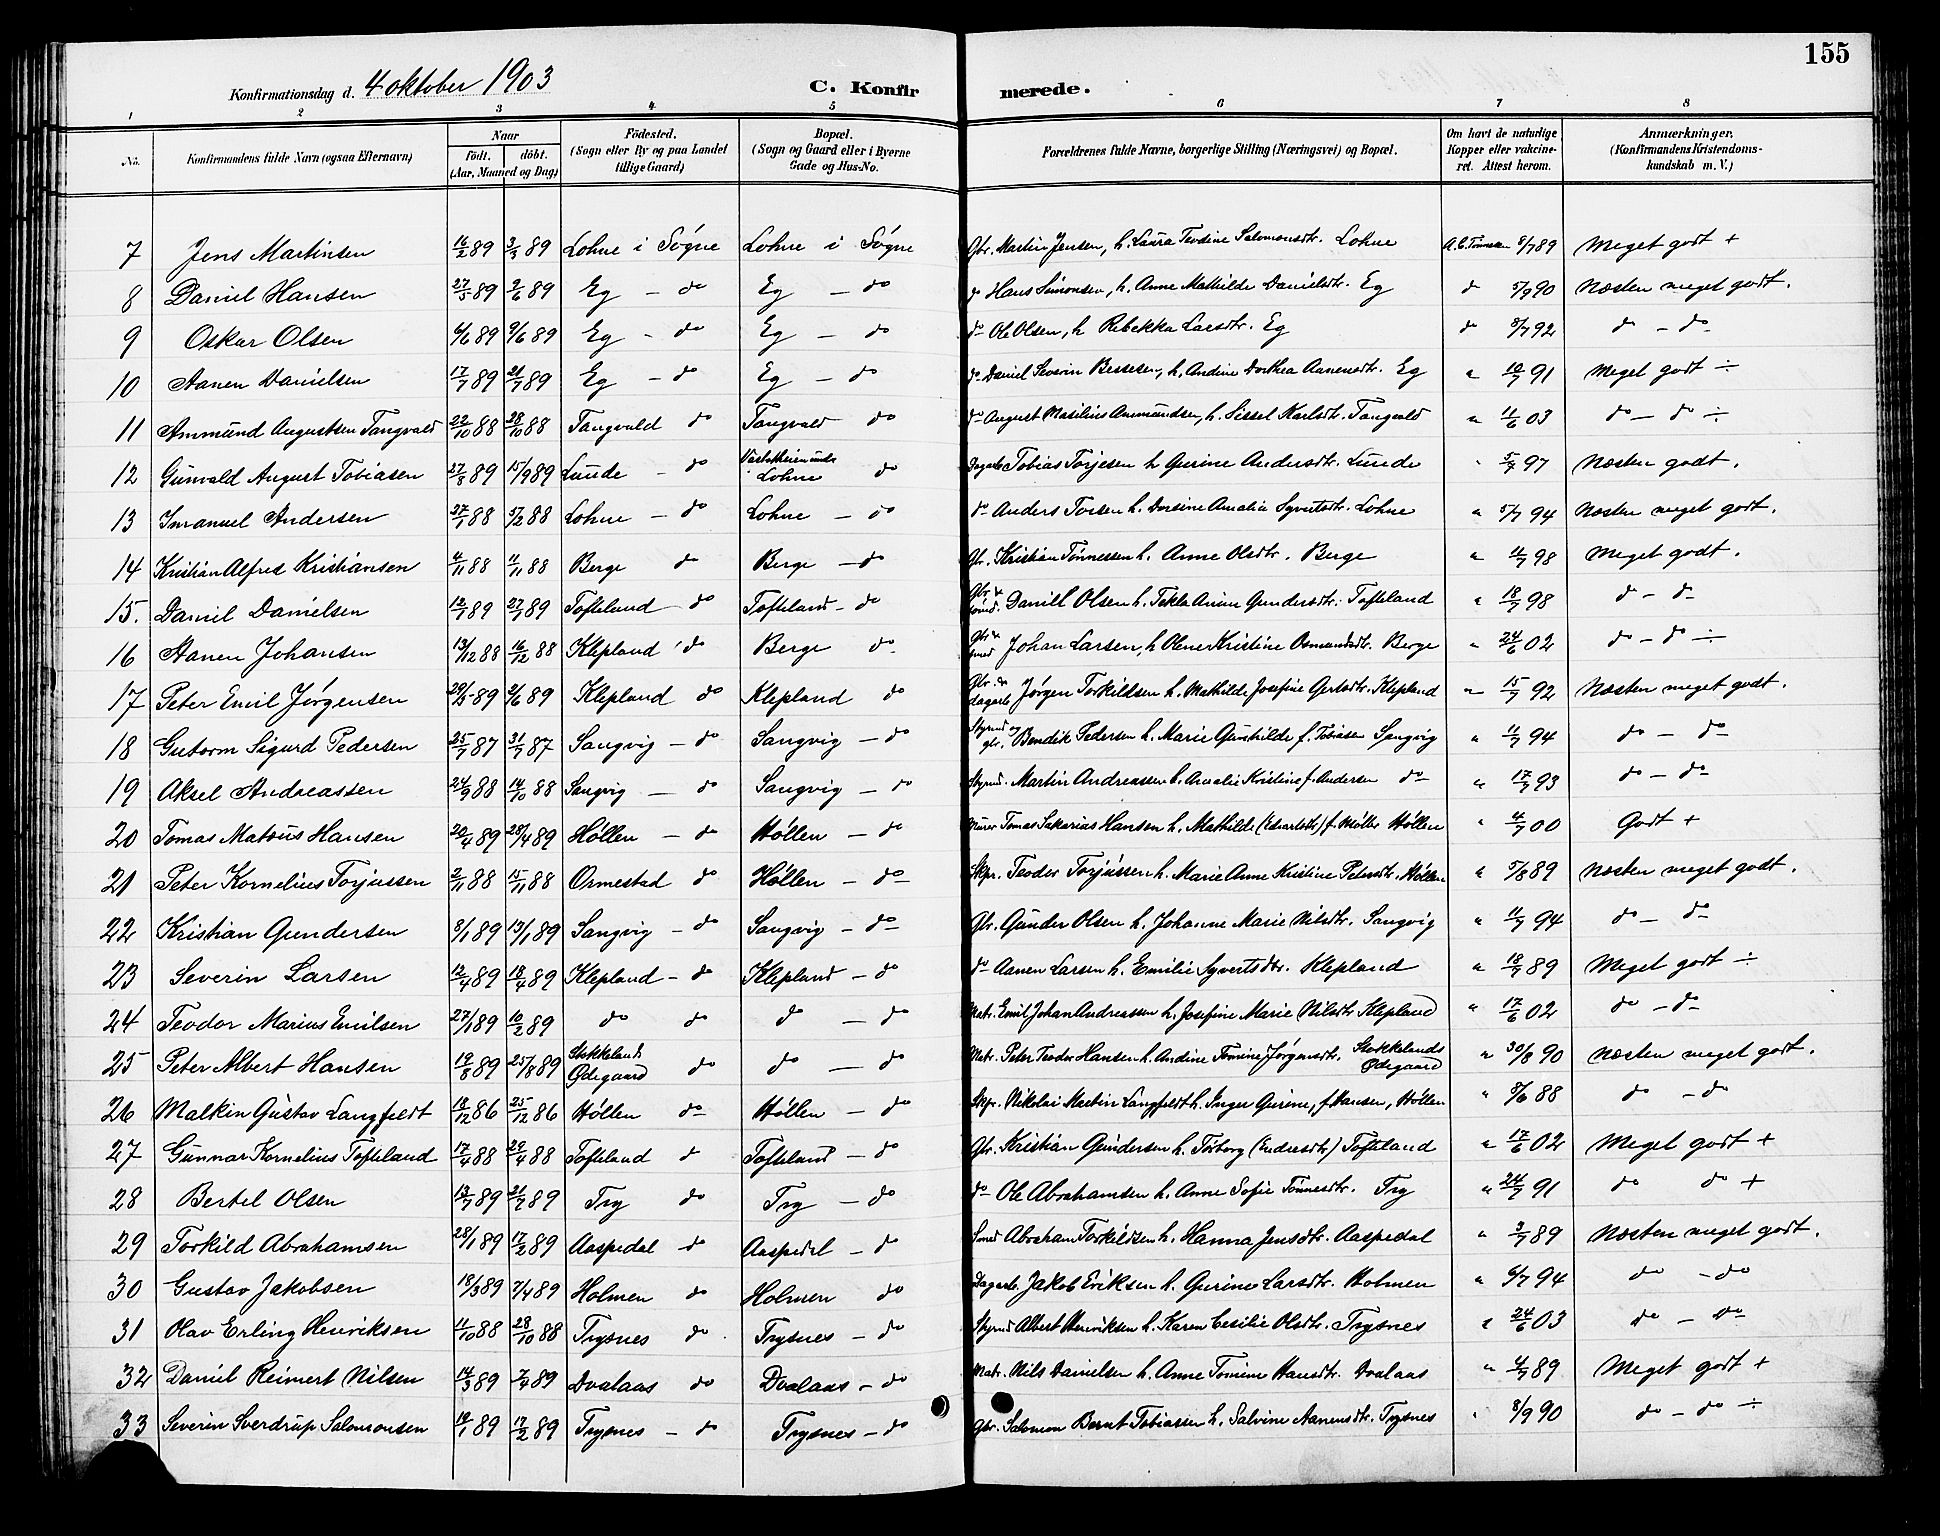 155
Konfirmationsdag d. 4 oktober 1903 C. Konfirmerede.
1 2 3 4 5 6 7 8
No. Konfirmandens fulde Navn (ogsaa Efternavn) Naar födt. döbt. (Aar, Maaned og Dag) Födested. (Sogn eller By og paa Landet tillige Gaard) Bopæl. (Sogn og Gaard eller i Byerne Gade og Hus-No. Forældrenes fulde Navne, borgerlige Stilling (Næringsvei) og Bopæl. Om havt de naturlige Kopper eller vakcineret. Attest herom. Anmærkninger. (Konfirmandens Kristendomskundskab m. V.)
7 Jens Martinsen 16/2 89 3/3 89 Lohne i Søgne Lohne i Søgne Gbr. Martin Jensen, h. Laura Teodine Salomonsdtr. Lohne 8/7 89 Meget godt +
8 Daniel Hansen 27/5 89 9/6 89 Eg - do Eg - do do Hans Simonsen, h. Anne Mathilde Danielsdtr. Eg do 5/9 90 Næsten meget godt.
9 Oskar Olsen 6/6 89 9/6 89 Eg - do Eg - do do Ole Olsen, h Rebekka Larsdtr. Eg do 8/7 92 do - do
10 Aanen Danielsen 17/7 89 21/7 89 Eg - do Eg - do do Daniel Severin Bessesen, h. Andine Dorthea Aanensdtr. Eg " 10/7 91 Meget godt ÷
11 Ammund Augustsen Tangvald 22/10 88 28/10 88 Tangvald do Tangvald do do August Masilius Ammundsen, h. Sissel Karlsdtr. Tangvald " 11/6 03 do - do ÷
12 Gunvald August Tobiasen 27/8 89 15/9 89 Lunde - do Lohne do Dagarb. Tobias Torjesen h Gurine Andersdtr. Lunde " 5/7 97 Næsten godt.
13 Imanuel Andersen 27/1 88 5/2 88 Lohne - do Lohne - do do Anders Torsen h. Dorsine Amalie Syvertsdtr. Lohne " 5/7 94 Næsten meget godt.
14 Kristian Alfred Kristiansen 4/11 88 11/11 88 Berge do Berge - do Gbr. Kristian Tønnessen h. Anne Olsdtr. Berge " 4/7 98 Meget godt.
15. Daniel Danielsen 12/7 89 27/7 89 Tofteland - do Tofteland - do Gbr & smed. Daniel Olsen h. Tekla Anine Gundersdtr. Tofteland " 18/7 98 do - do
16 Aanen Johansen 13/12 88 16/12 88 Klepland do Berge do Gbr & smed Johan Larsen, h Olene Kristine Osmundsdtr. Berge " 24/6 02 do - do ÷
17 Peter Emil Jørgensen 29/5 89 9/6 89 Klepland do Klepland do Gbr. & dagarb. Jørgen Torkildsen h. Mathilde Josefine Gertsdtr. Klepland " 15/7 92 Næsten meget godt.
18 Gutorm Sigurd Pedersen 25/7 87 31/7 87 Sangvig - do Sangvig - do Styrmd og gbr. Bendik Pedersen h. Marie Gunhilde f. Tobiasen Sangvig " 11/7 94 do - do
19 Aksel Andreassen 24/9 88 14/10 88 Sangvig - do Sangvig - do Styrmd. Martin Andreassen h. Amalie Kristine f. Andersen do " 17/7 93 do - do
20 Tomas Mateus Hansen 20/4 89 28/4 89 Høllen - do Høllen - do Murer Tomas Sakarias Hansen h. Mathilde (Edvartsdtr) f. Møller Høllen " 4/7 00 Godt +
21 Peter Kornelius Torjussen 2/11 88 15/11 88 Ormestad do Høllen - do Skpr. Teodor Torjussen h. Marie Anne Kristine Petersdtr. Høllen " 5/8 89 Næsten meget godt.
22 Kristian Gundersen 8/1 89 13/1 89 Sangvig - do Sangvig - do Gbr. Gunder Olsen h. Johanne Marie Nilsdtr. Sangvig " 11/7 94 do - do
23 Severin Larsen 12/4 89 18/4 89 Klepland - do Klepland - do do Aanen Larsen h. Emilie Syvertsdtr. Klepland " 18/7 89 Meget godt ÷
24 Teodor Marius Emilsen 27/1 89 10/2 89 do do do - do Matr. Emil Johan Andreassen h. Josefine Marie Nilsdtr Klepland " 17/6 02 do - do
25 Peter Albert Hansen 19/8 89 25/8 89 Stokkelands Ødegaard do do - do Matr. Peter Teodor Hansen h. Andine Tomine Jørgensdtr. Stokkelands Ødegaard " 30/8 90 Næsten meget godt.
26 Malkin Gustav Langfeldt 18/12 86 25/12 86 Høllen do Høllen - do Skpr. Nikolai Martin Langfeldt h. Inger Gurine, f. Hansen, Høllen " 8/6 88 do - do
27 Gunnar Kornelius Tofteland 17/4 88 29/4 88 Tofteland do Tofteland - do Gbr. Kristian Gundersen h. Torborg (Endresdtr) Tofteland " 17/6 02 Meget godt +
28 Bertel Olsen 13/7 89 21/7 89 Try do Try - do do Ole Abrahamsen h. Anne Sofie Tønnesdtr. Try " 24/7 91 do do +
29 Torkild Abrahamsen 28/1 89 17/2 89 Aaspedal do Aaspedal - do Smed Abraham Torkildsen h. Hanna Jensdtr. Aaspedal " 3/7 89 Næsten meget godt.
30 Gustav Jakobsen 18/3 89 7/4 89 Holmen do Holmen do Dagarb. Jakob Eriksen h. Gurine Larsdtr. Holmen " 6/7 94 do - do
31 Olav Erling Henriksen 11/10 88 28/10 88 Trysnes do Trysnes - do Styrmd Albert Henriksen h. Karen Cesilie Olsdtr. Trysnes " 24/6 03 do - do
32 Daniel Reimert Nilsen 14/3 89 7/4 89 Dvalaas do Dvalaas - do Matr. Nils Danielsen h. Anne Tomine Hansdtr. Dvalaas " 4/7 89 Meget godt +
33 Severin Sverdrup Salomonsen 19/1 89 17/2 89 Trysnes - do Trysnes - do Gbr. Salomon Bernt Tobiassen h. Salvine Aanensdtr. Trysnes " 8/9 90 do - do ÷